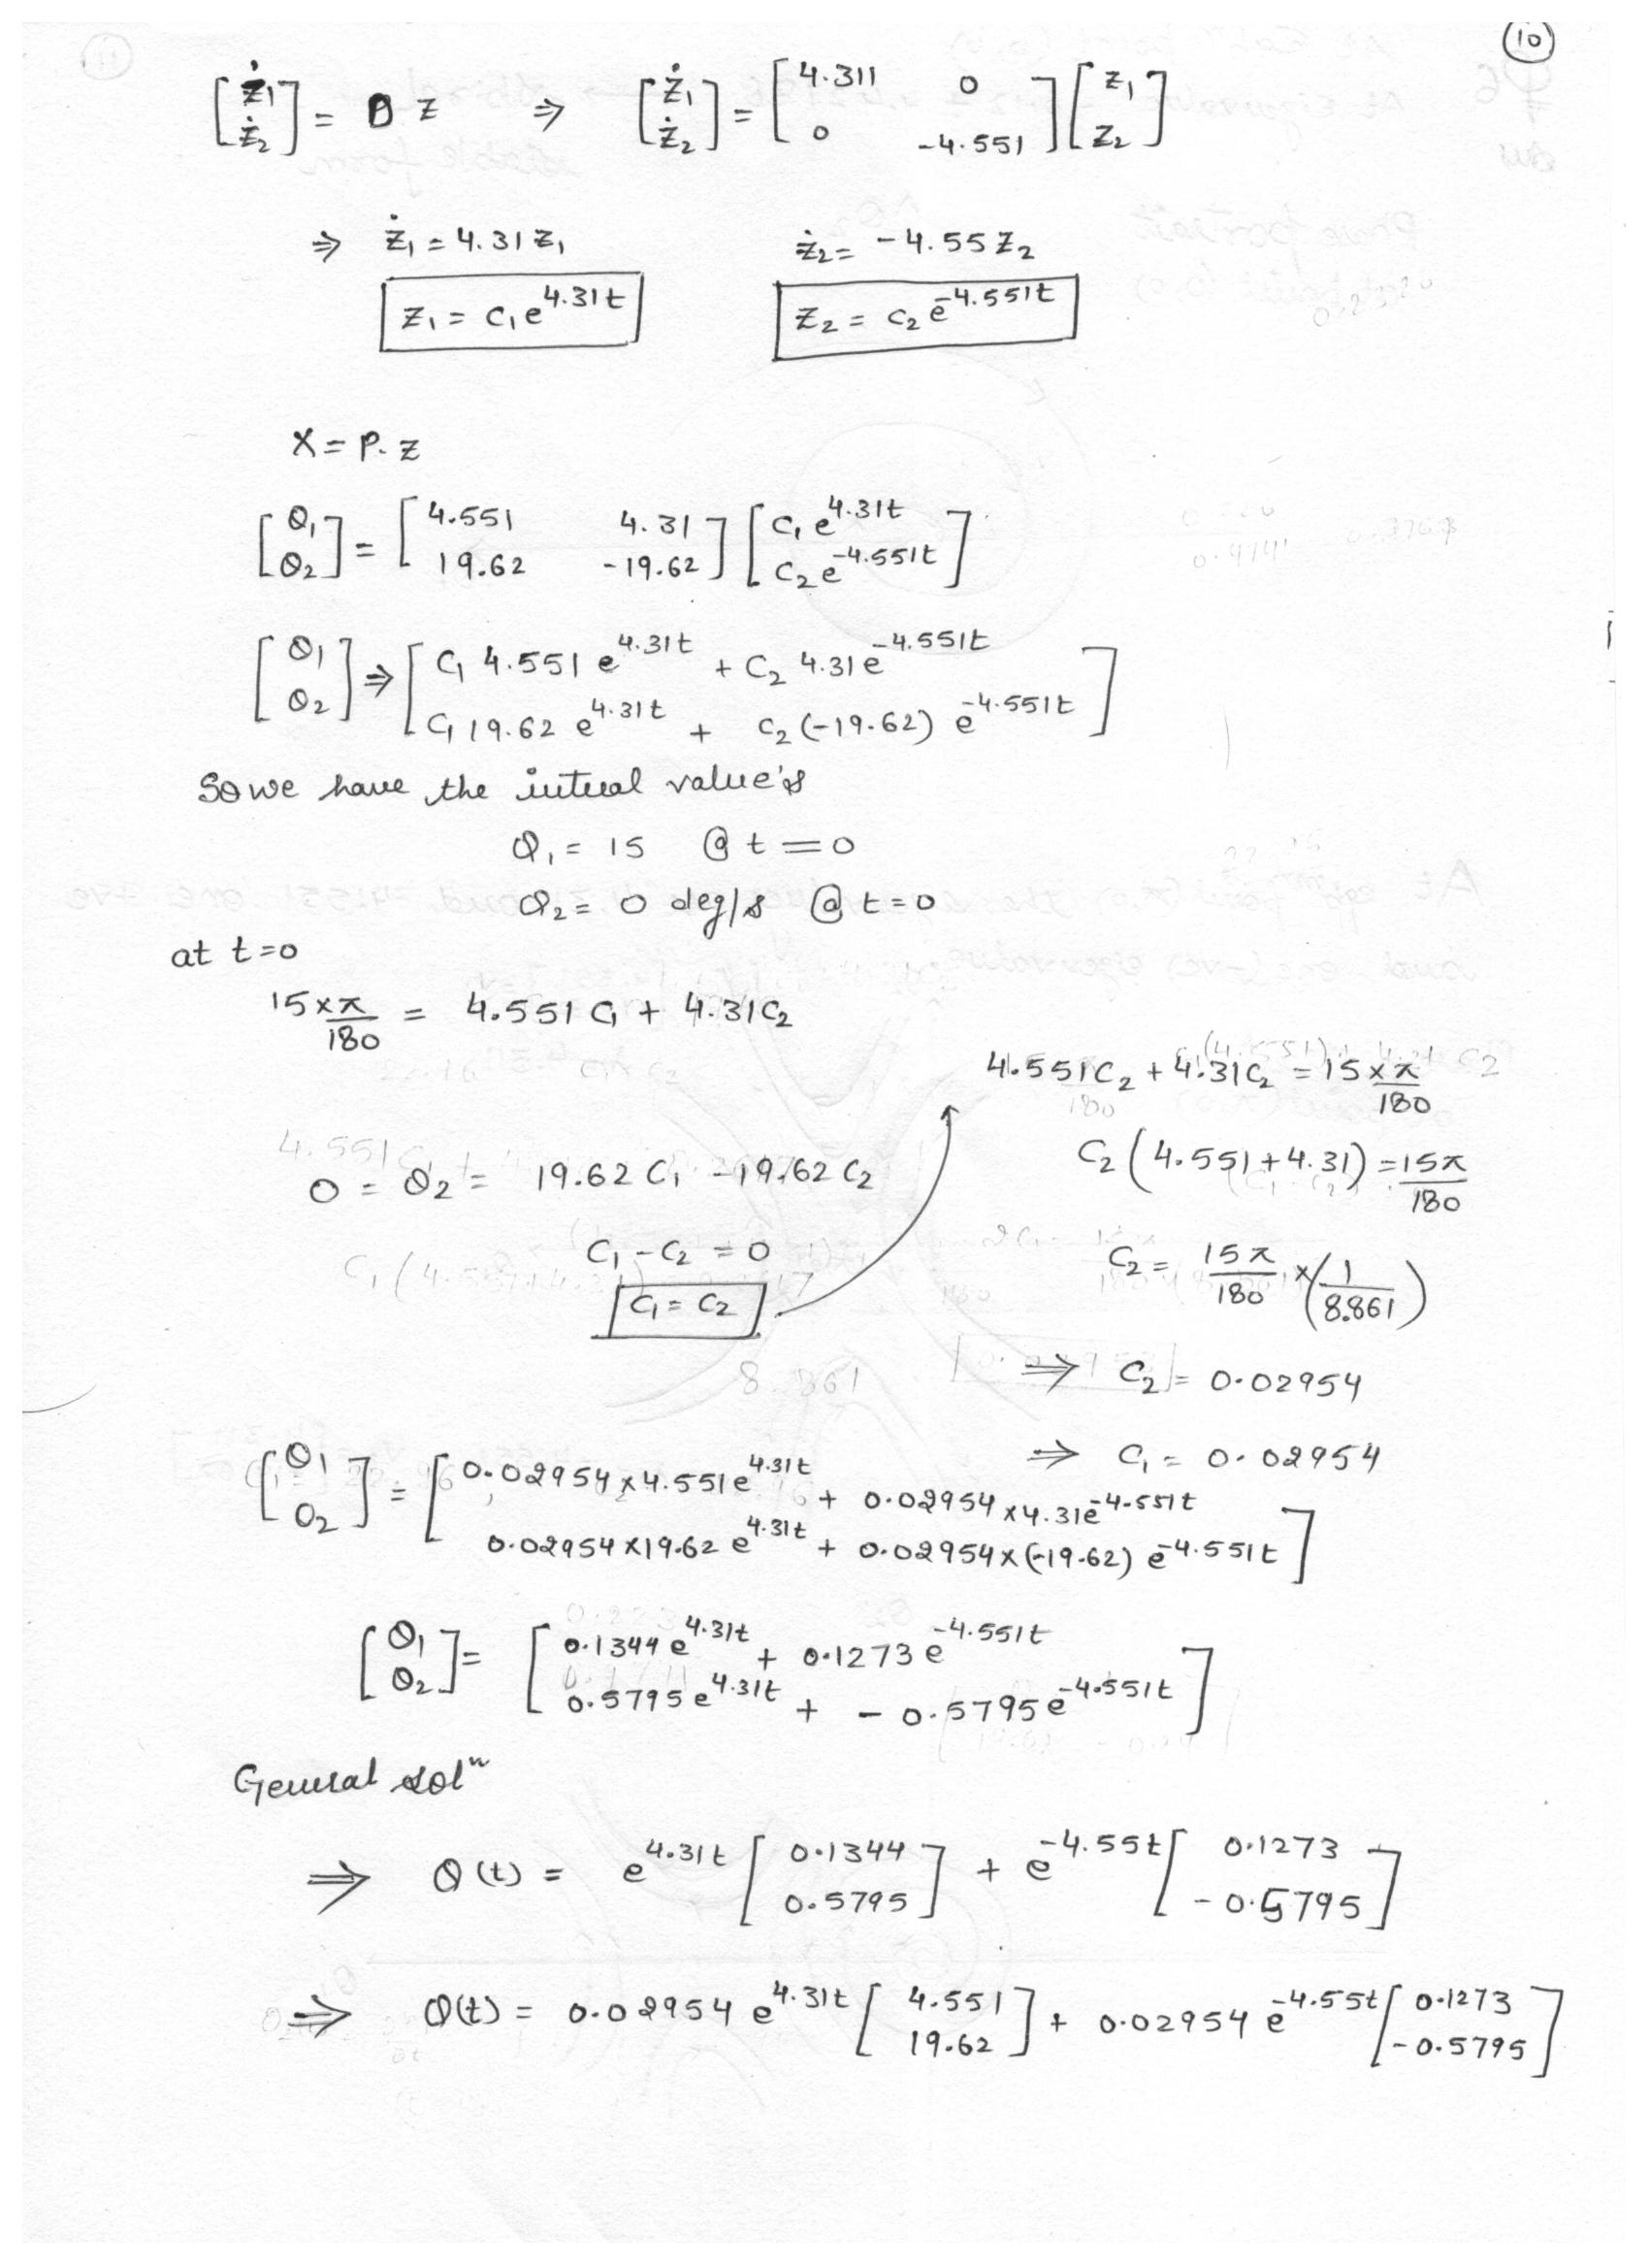 10
[ż1; ż2] = D z ⇒ [ż1; ż2] = [4.311 0; 0 -4.551] [z1; z2]
⇒ ż1 = 4.31 z1 ż2 = -4.55 z2
z1 = c1 e^4.31t z2 = c2 e^-4.551t
X = P. z
[θ1; θ2] = [4.551 4.31; 19.62 -19.62] [c1 e^4.31t; c2 e^-4.551t]
[θ1; θ2] ⇒ [c1 4.551 e^4.31t + c2 4.31 e^-4.551t; c1 19.62 e^4.31t + c2 (-19.62) e^-4.551t]
So we have the intial value's
θ1 = 15 @ t = 0
θ2 = 0 deg/s @ t = 0
at t = 0
15×π/180 = 4.551 c1 + 4.31 c2
0 = θ2 = 19.62 c1 - 19.62 c2
c1 - c2 = 0
c1 = c2
4.551 c2 + 4.31 c2 = 15×π/180
c2 (4.551 + 4.31) = 15π/180
c2 = 15π/180 × (1/8.861)
⇒ c2 = 0.02954
⇒ c1 = 0.02954
[θ1; θ2] = [0.02954 × 4.551 e^4.31t + 0.02954 × 4.31 e^-4.551t; 0.02954 × 19.62 e^4.31t + 0.02954 × (-19.62) e^-4.551t]
[θ1; θ2] = [0.1344 e^4.31t + 0.1273 e^-4.551t; 0.5795 e^4.31t + - 0.5795 e^-4.551t]
General solⁿ
⇒ θ(t) = e^4.31t [0.1344; 0.5795] + e^-4.55t [0.1273; -0.5795]
⇒ θ(t) = 0.02954 e^4.31t [4.551; 19.62] + 0.02954 e^-4.55t [0.1273; -0.5795]